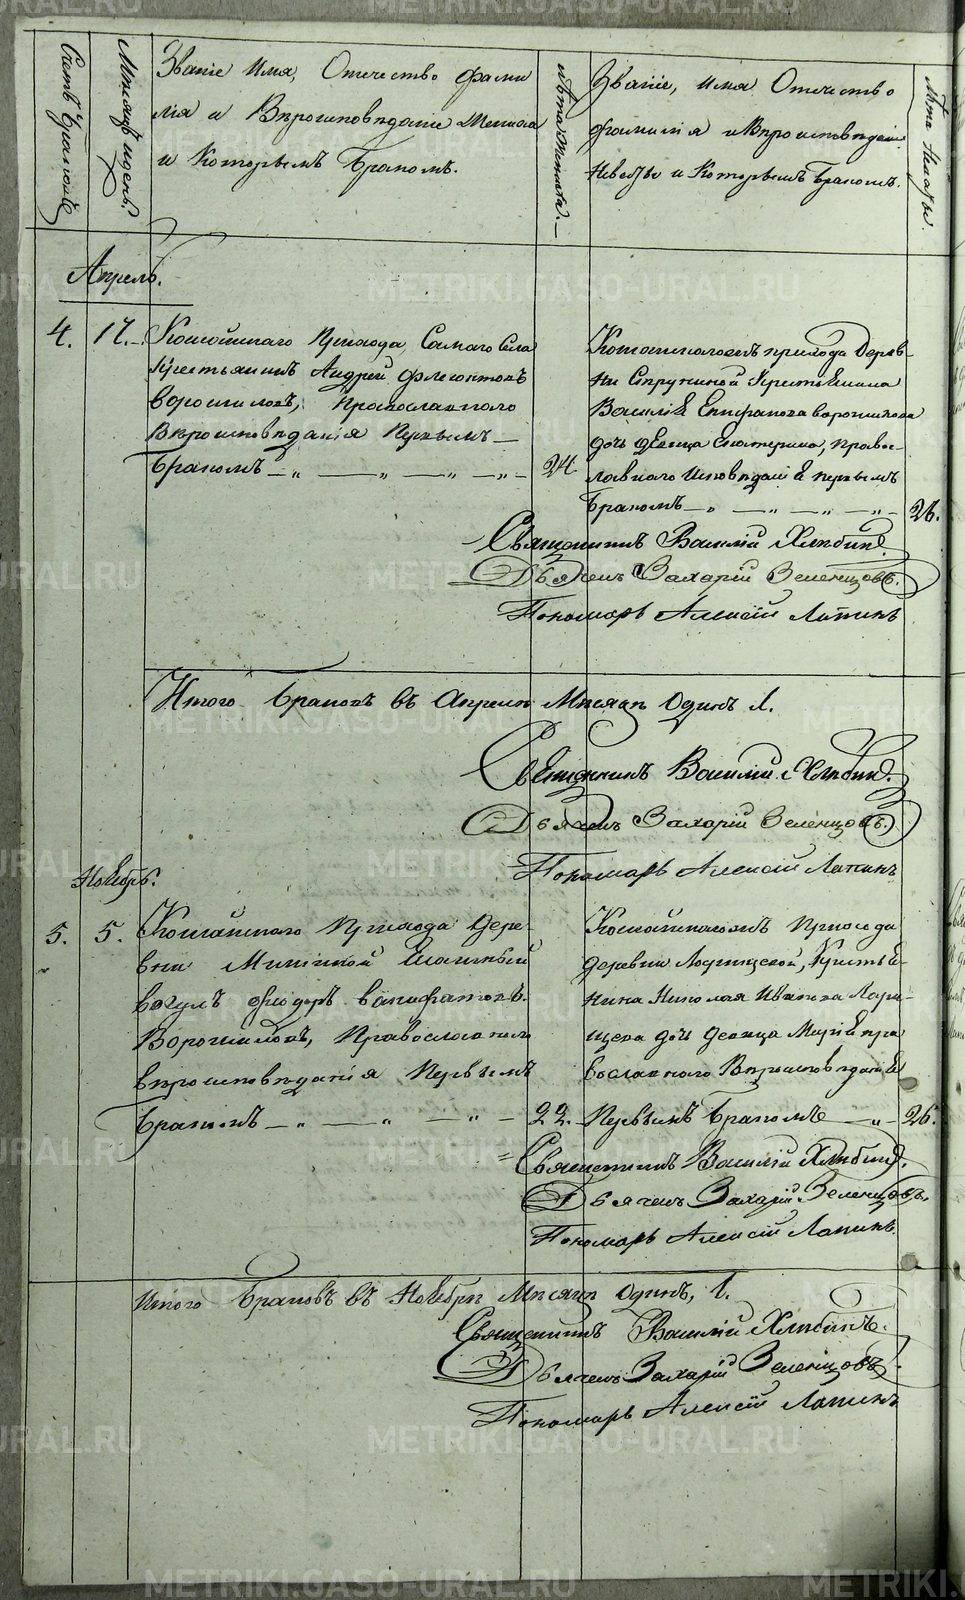 Счетъ Браковъ
Мѣсяцъ и день.
Званіе Имя, Отечество Фами
лія и Вѣроисповѣданіе Жениха
и Которымъ Бракомъ.
Лѣта Жениха.
Званіе, имя Отечество
Фамилія и Вѣроисповѣданіе
Невѣсты и Которымъ Бракомъ.
Лѣта Невѣсты.
Апрель.
4.
17.
Кошайскаго Прихода, Самаго Села
Крестьянинъ Андрей Флегонтовъ
Ворошиловъ, Православнаго
Вѣроисповѣданія Первымъ
Бракомъ
24
Кошайскагожъ прихода Дерев-
ни Крестьянина
Василія Епифанова Ворошилова
дочь девица Екатерина, Право-
славнаго исповѣданія первымъ
Бракомъ
26.
Священникъ Василій Хлѣбинъ.
Дьячекъ Захарій Зеленцовъ.
Пономарь Алексій Лапинъ
Итого Браковъ въ Апрелѣ Мѣсяцѣ Одинъ 1.
Священникъ Василій Хлѣбинъ.
Дьячекъ Захарій Зеленцовъ.
Пономарь Алексій Лапинъ
Ноябрь.
5.
5.
Кошайскаго Прихода Дере-
вни Митиной Ясачный
Вогулъ Федоръ Ванифатовъ
Ворошиловъ, Православнаго
вѣроисповѣданія Первымъ
Бракомъ
22.
Кошайскагожъ Прихода
деревни Крестья-
нина Николая Иванова Лари-
щева дочь девица Марія пра
вославнаго Вѣроисповѣданія
Первымъ Бракомъ
26.
Священникъ Василій Хлѣбинъ.
Дьячекъ Захарій Зеленцовъ.
Пономарь Алексій Лапинъ.
Итого Браковъ въ Ноябрѣ Мѣсяцѣ Одинъ, 1.
Священникъ Василій Хлѣбинъ.
Дьячекъ Захарій Зеленцовъ.
Пономарь Алексій Лапинъ
METRIKI.GASO-URAL.RU